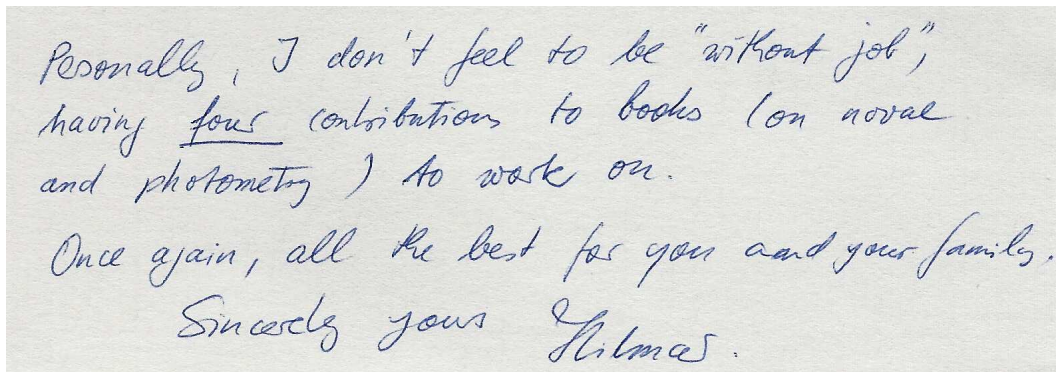 Pesonally, I don't feel to be "without job",
having four contributions to books (on novae
and photometry) to work on.
Once again, all the best for you and your family.
Sincerely yours Hilmar.